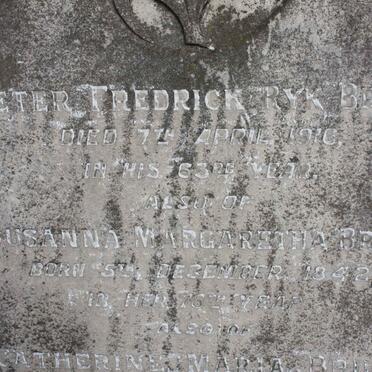 ETER FREDRICK RYK B
DIED 7TH APRIL 1916,
IN HIS 63RD YEAR.
ALSO OF
SUSANNA MARGARETHA BR
BORN 5TH DECEMBER 1842,
IN HER YEAR
ALSO OF
CATHERINE MARIA BRI